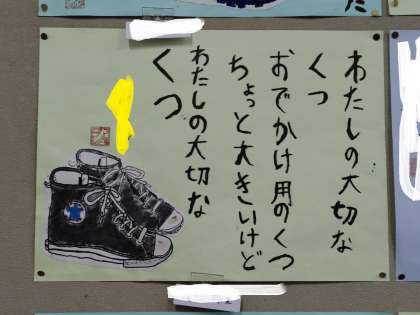 わたしの大切な
くつ
おでかけ用のくつ
ちょっと大きいけど
わたしの大切な
くつ